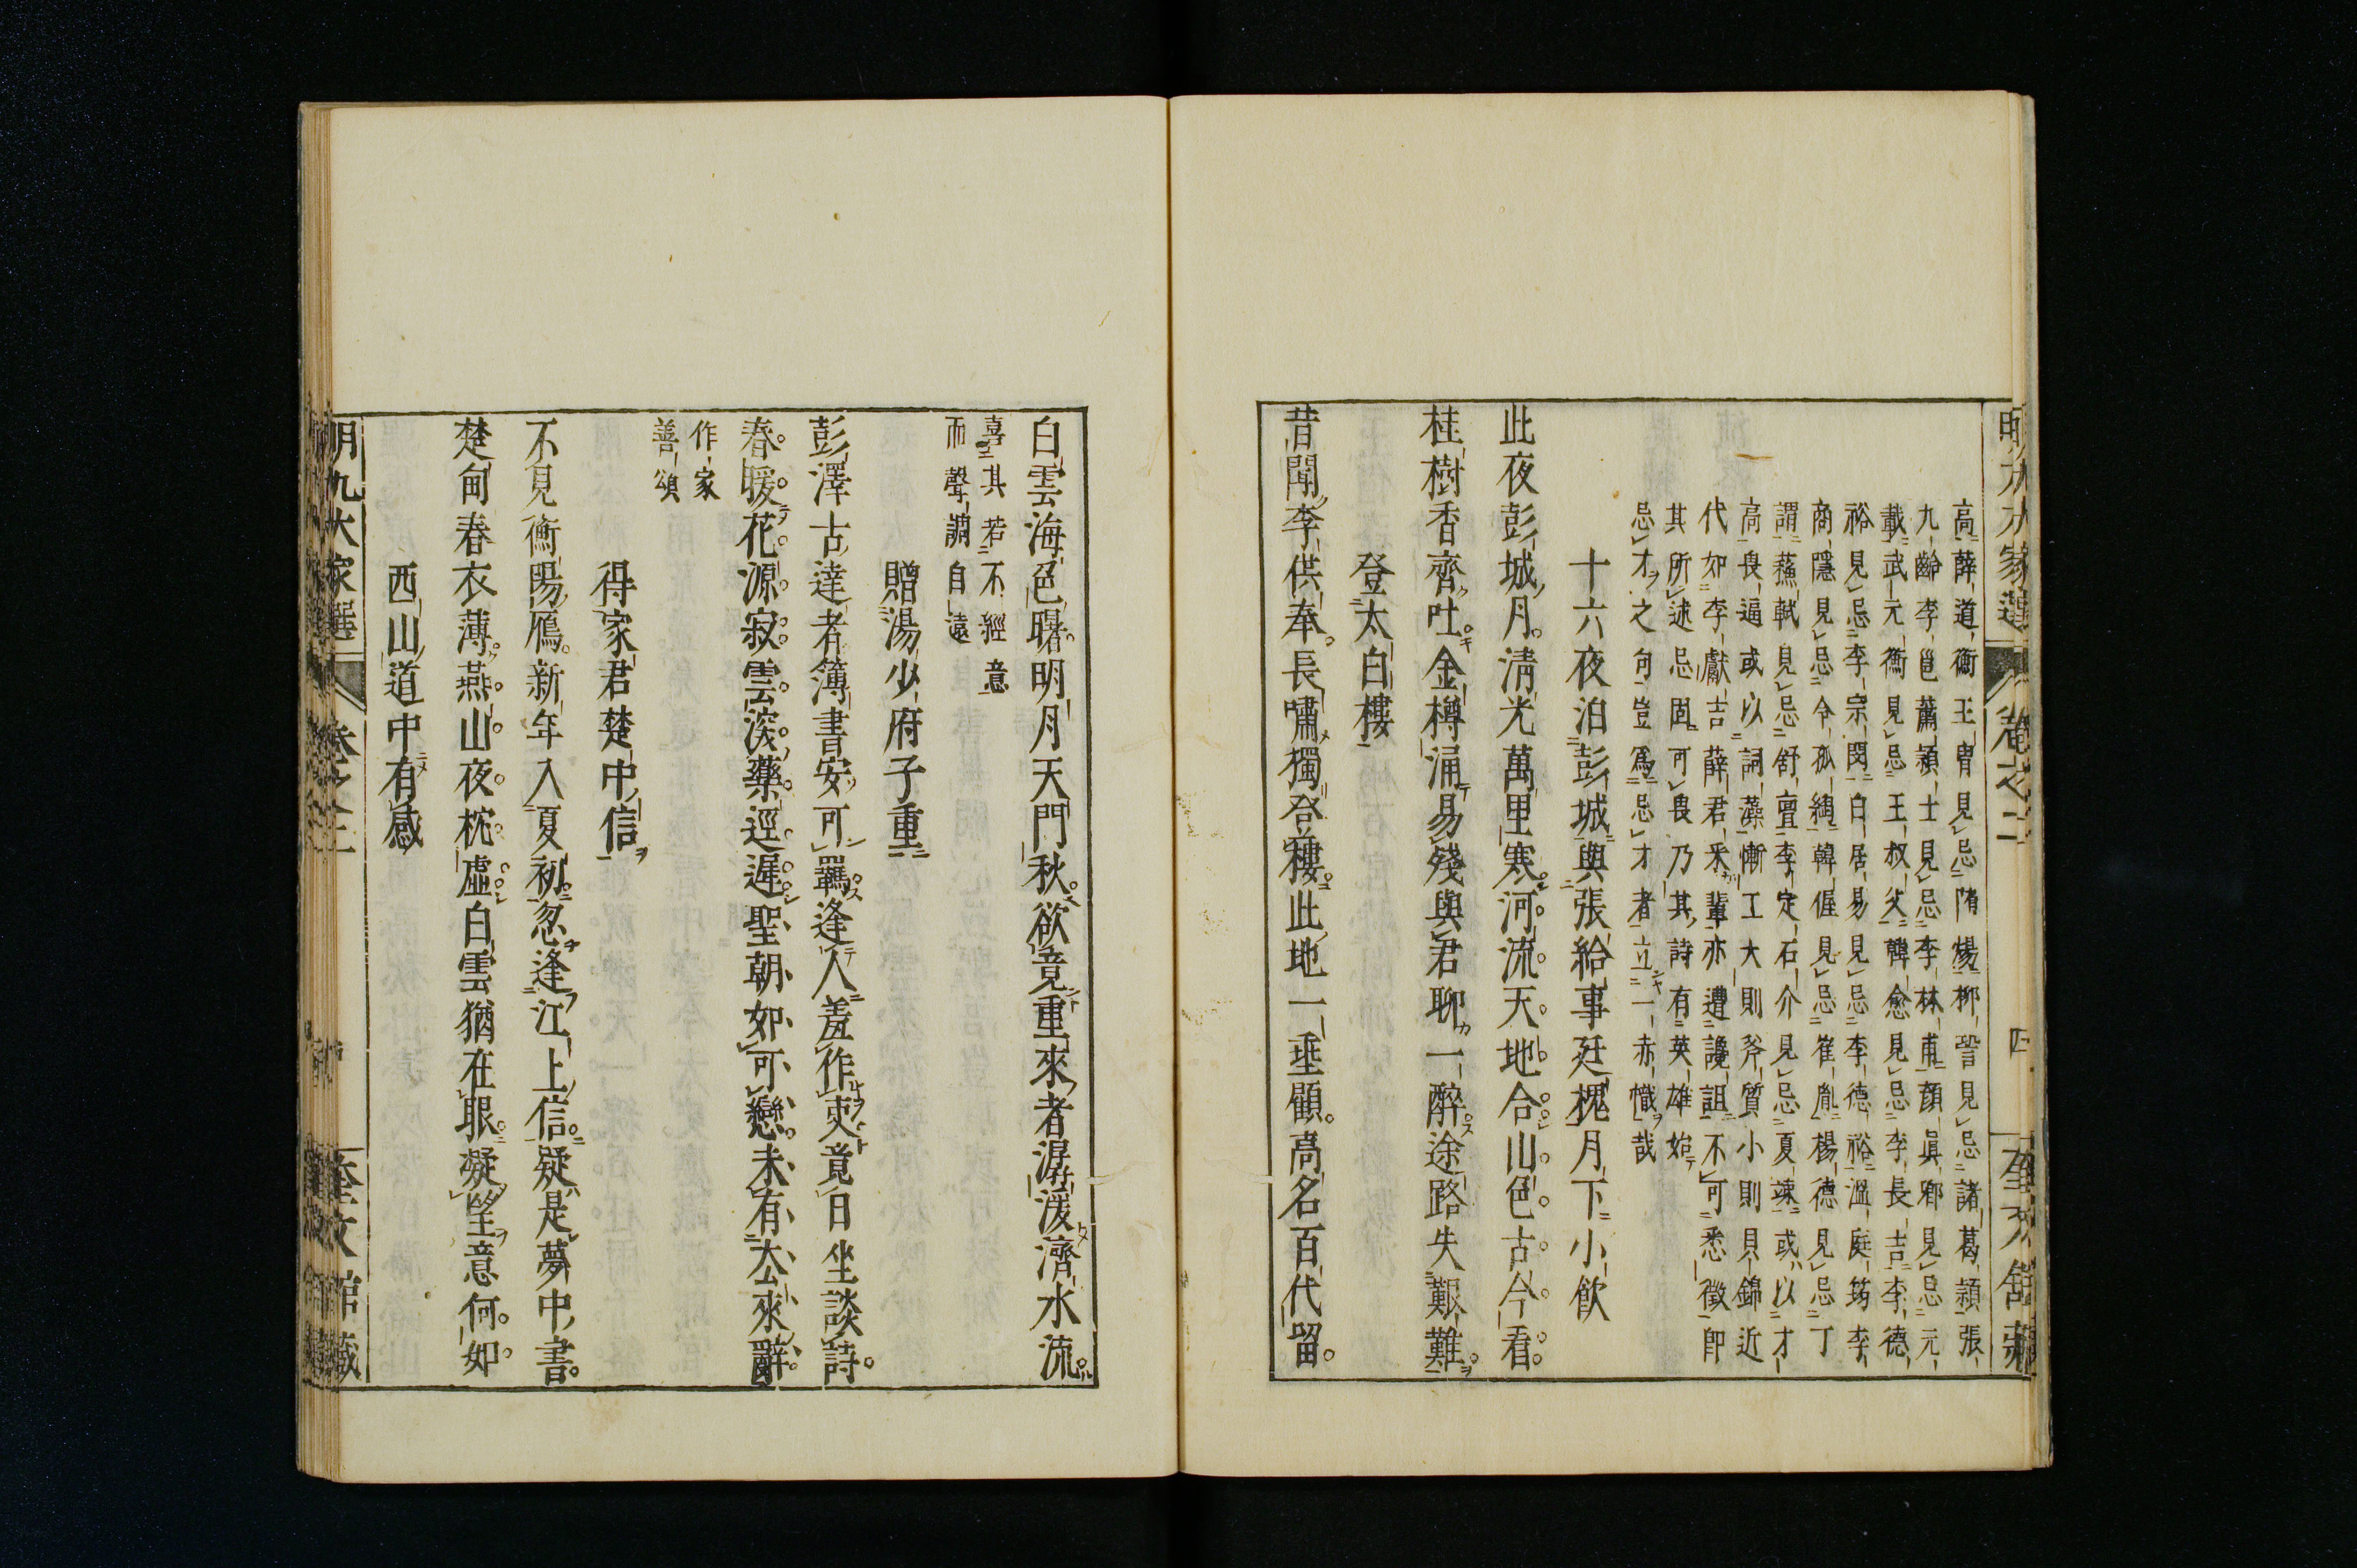 高薛道衡王冑見忌隋煬柳䛒見忌諸葛潁張
九齡李邕蕭潁士見忌李林甫顏眞卿見忌元
載武元衡見忌王叔文韓愈見忌李長吉李德
裕見忌李宗閔白居易見忌李德裕溫庭筠李
商隱見忌令狐綯韓偓見忌崔胤楊德見忌丁
謂蘇軾見忌舒亶李定石介見忌夏竦或以才
高畏逼或以詞藻慚工大則斧質小則貝錦近
代如李獻吉薛君采輩亦遭讒詛不可悉徵卽
其所述忌固可畏乃其詩有英雄始
忌才之句豈爲忌才者立一赤幟哉
十六夜泊彭城與張給事廷槐月下小飮
此夜彭城月淸光萬里寒河流天地合山色古今看
桂樹香齊吐金樽涌易殘與君聊一醉途路失艱難
登太白樓
昔聞李供奉長嘯獨登樓此地一垂顧高名百代留
白雲海色曙明月天門秋欲竟重來者潺湲濟水流
喜其若不經意
而聲調自遠
贈湯少府子重
彭澤古達者簿書安可羈逢人羞作吏竟日坐談詩
春暖花源寂雲深藥逕遲聖朝如可戀未有去來辭
作家
善頌
得家君楚中信
不見衡陽鴈新年入夏初忽逢江上信疑是夢中書
楚甸春衣薄燕山夜枕虛白雲猶在眼凝望意何如
西山道中有感
明九大家選